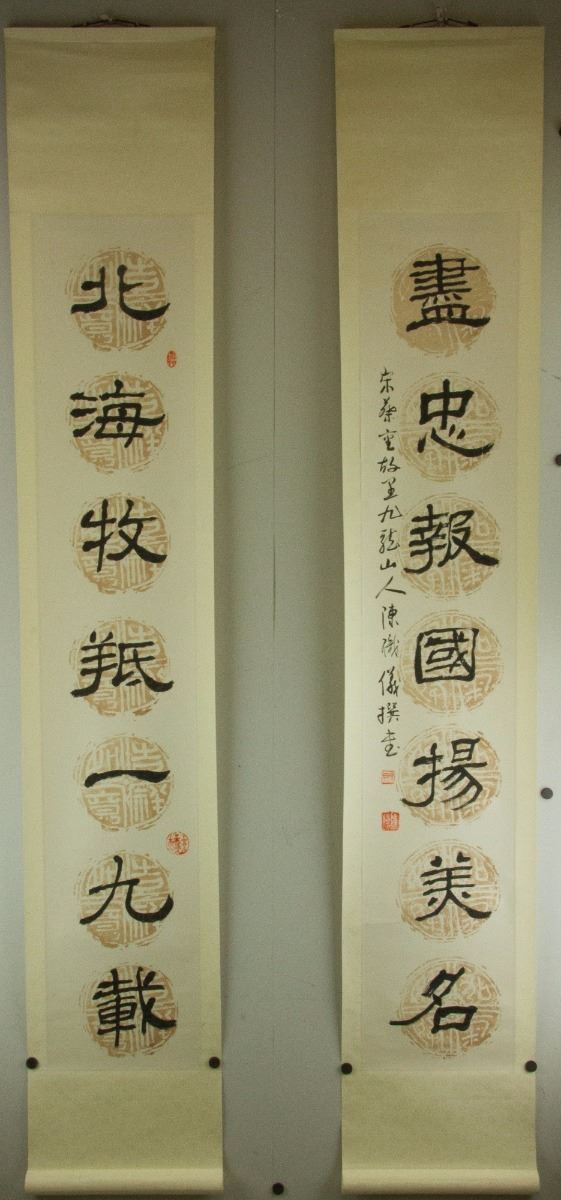 北海牧羝一九載
盡忠報國揚美名
故里九龍山人陳儀撰書